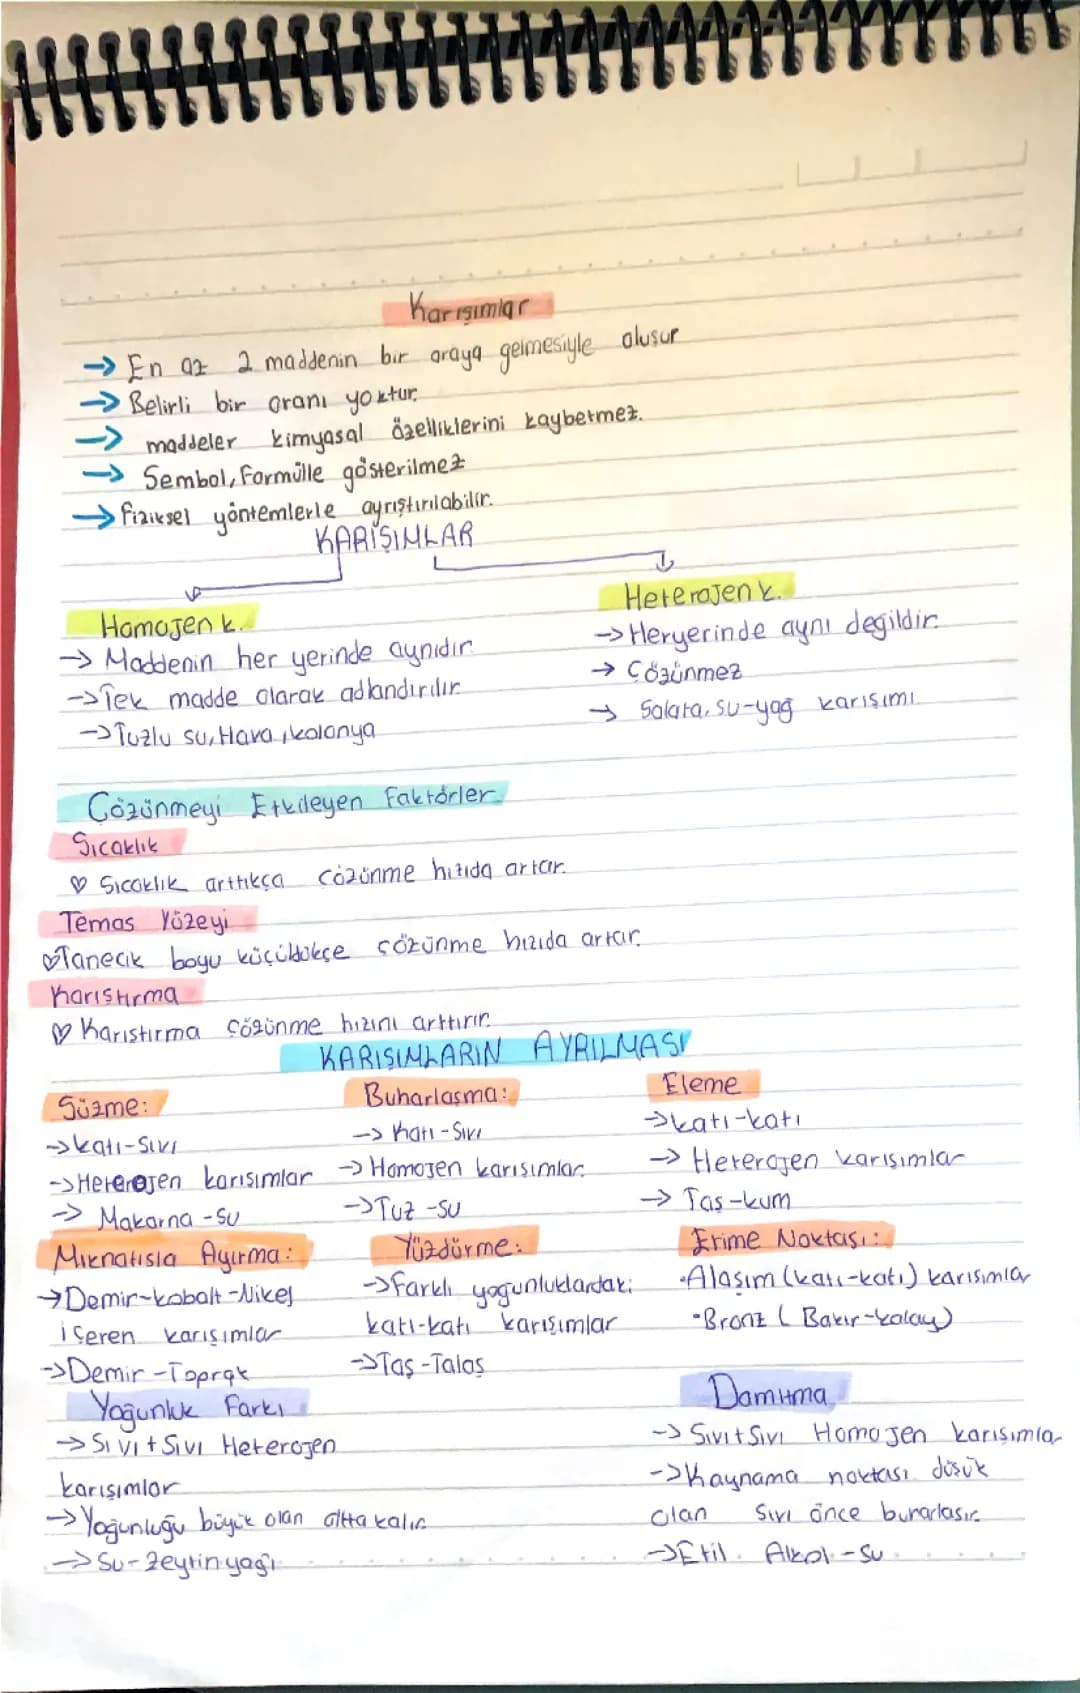 Karışımlar
→ En az 2 maddenin bir araya gelmesiyle oluşur
→ Belirli bir oranı yoktur.
→ maddeler kimyasal özelliklerini kaybetmez.
→ Sembol, Formülle gösterilmez
→ fiziksel yöntemlerle ayrıştırılabilir.
KARIŞIMLAR
Homojen k.
→ Maddenin her yerinde aynıdır.
→ Tek madde olarak adlandırılır
→ Tuzlu su, Hava, kolonya
Heterojen k.
→ Heryerinde aynı değildir.
→ Çözünmez
→ Salata, su-yağ karışımı.
Çözünmeyi Etkileyen Faktörler
Sıcaklık
♡ Sıcaklık arttıkça çözünme hızıda artar.
Temas Yüzeyi
♡ Tanecik boyu küçüldükçe çözünme hızıda artar.
Karıştırma
♡ Karıştırma çözünme hızını arttırır.
KARIŞIMLARIN AYRILMASI
Süzme:
→ katı-Sıvı
→ Heterojen karışımlar
→ Makarna -su
Buharlaşma:
→ Katı - Sıvı
→ Homojen karışımlar.
→ Tuz -su
Eleme
→ katı-katı
→ Heterojen karışımlar
→ Taş-kum
Mıknatısla Ayırma:
→ Demir-kobalt-Nikel
içeren karışımlar
→ Demir -Toprak
Yüzdürme:
→ farklı yoğunluklardaki
katı-katı karışımlar
→ Taş-Talaş
Erime Noktası:
• Alaşım (katı-katı) karışımlar
• Bronz (Bakır-kalay)
Yoğunluk Farkı
→ Sıvı + Sıvı Heterojen
karışımlar
→ Yoğunluğu büyük olan altta kalır.
→ Su-Zeytin yağı
Damıtma
→ Sıvı + Sıvı Homojen karışımla
→ Kaynama noktası düşük
olan sıvı önce buharlaşır.
→ Etil Alkol - Su